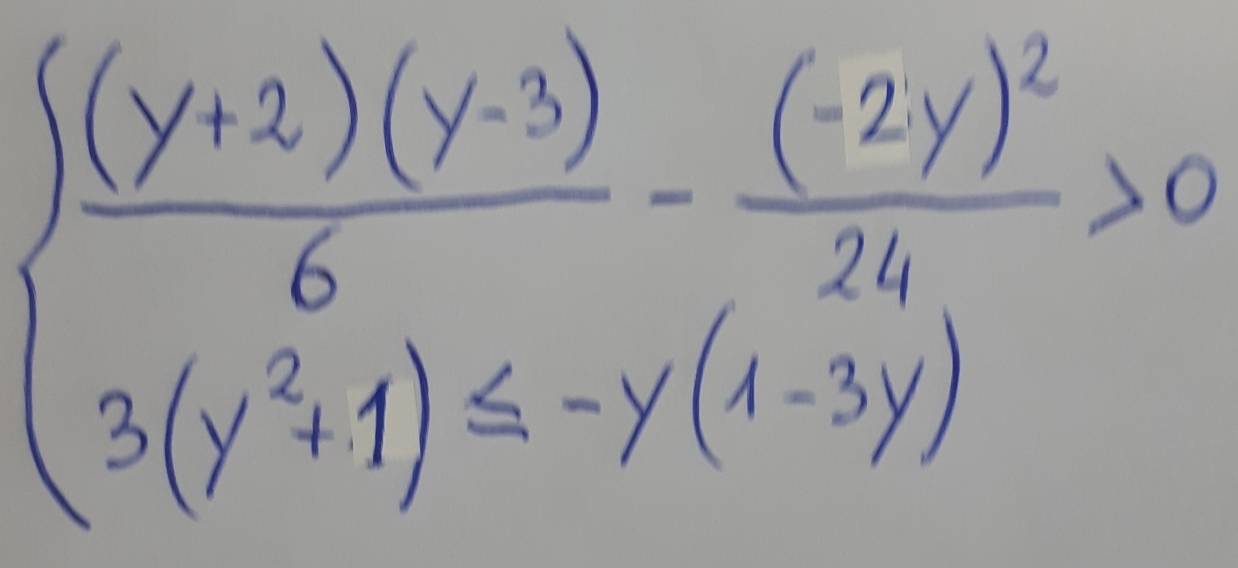 (y+2)(y-3)/6 - (-2y)²/24 > 0
3(y²+1) ≤ -y(1-3y)